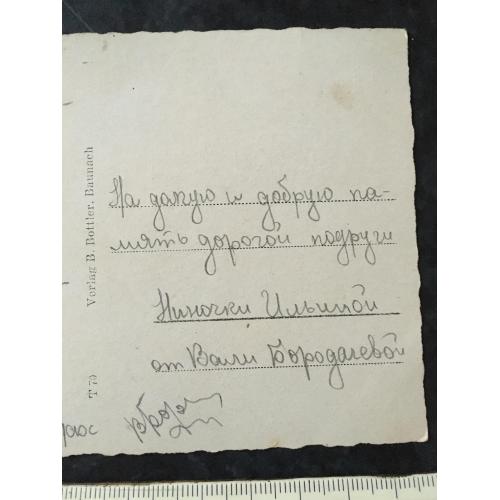 Verlag B. Bottler, Baunach
T 70
На далую и добрую па-
мять дорогой подруги
Ниночки Ильиной
от Вали Бородаевой